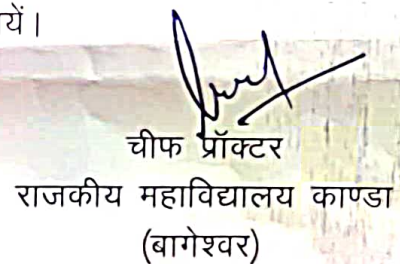 यें।
चीफ प्रॉक्टर
राजकीय महाविद्यालय काण्डा
(बागेश्वर)